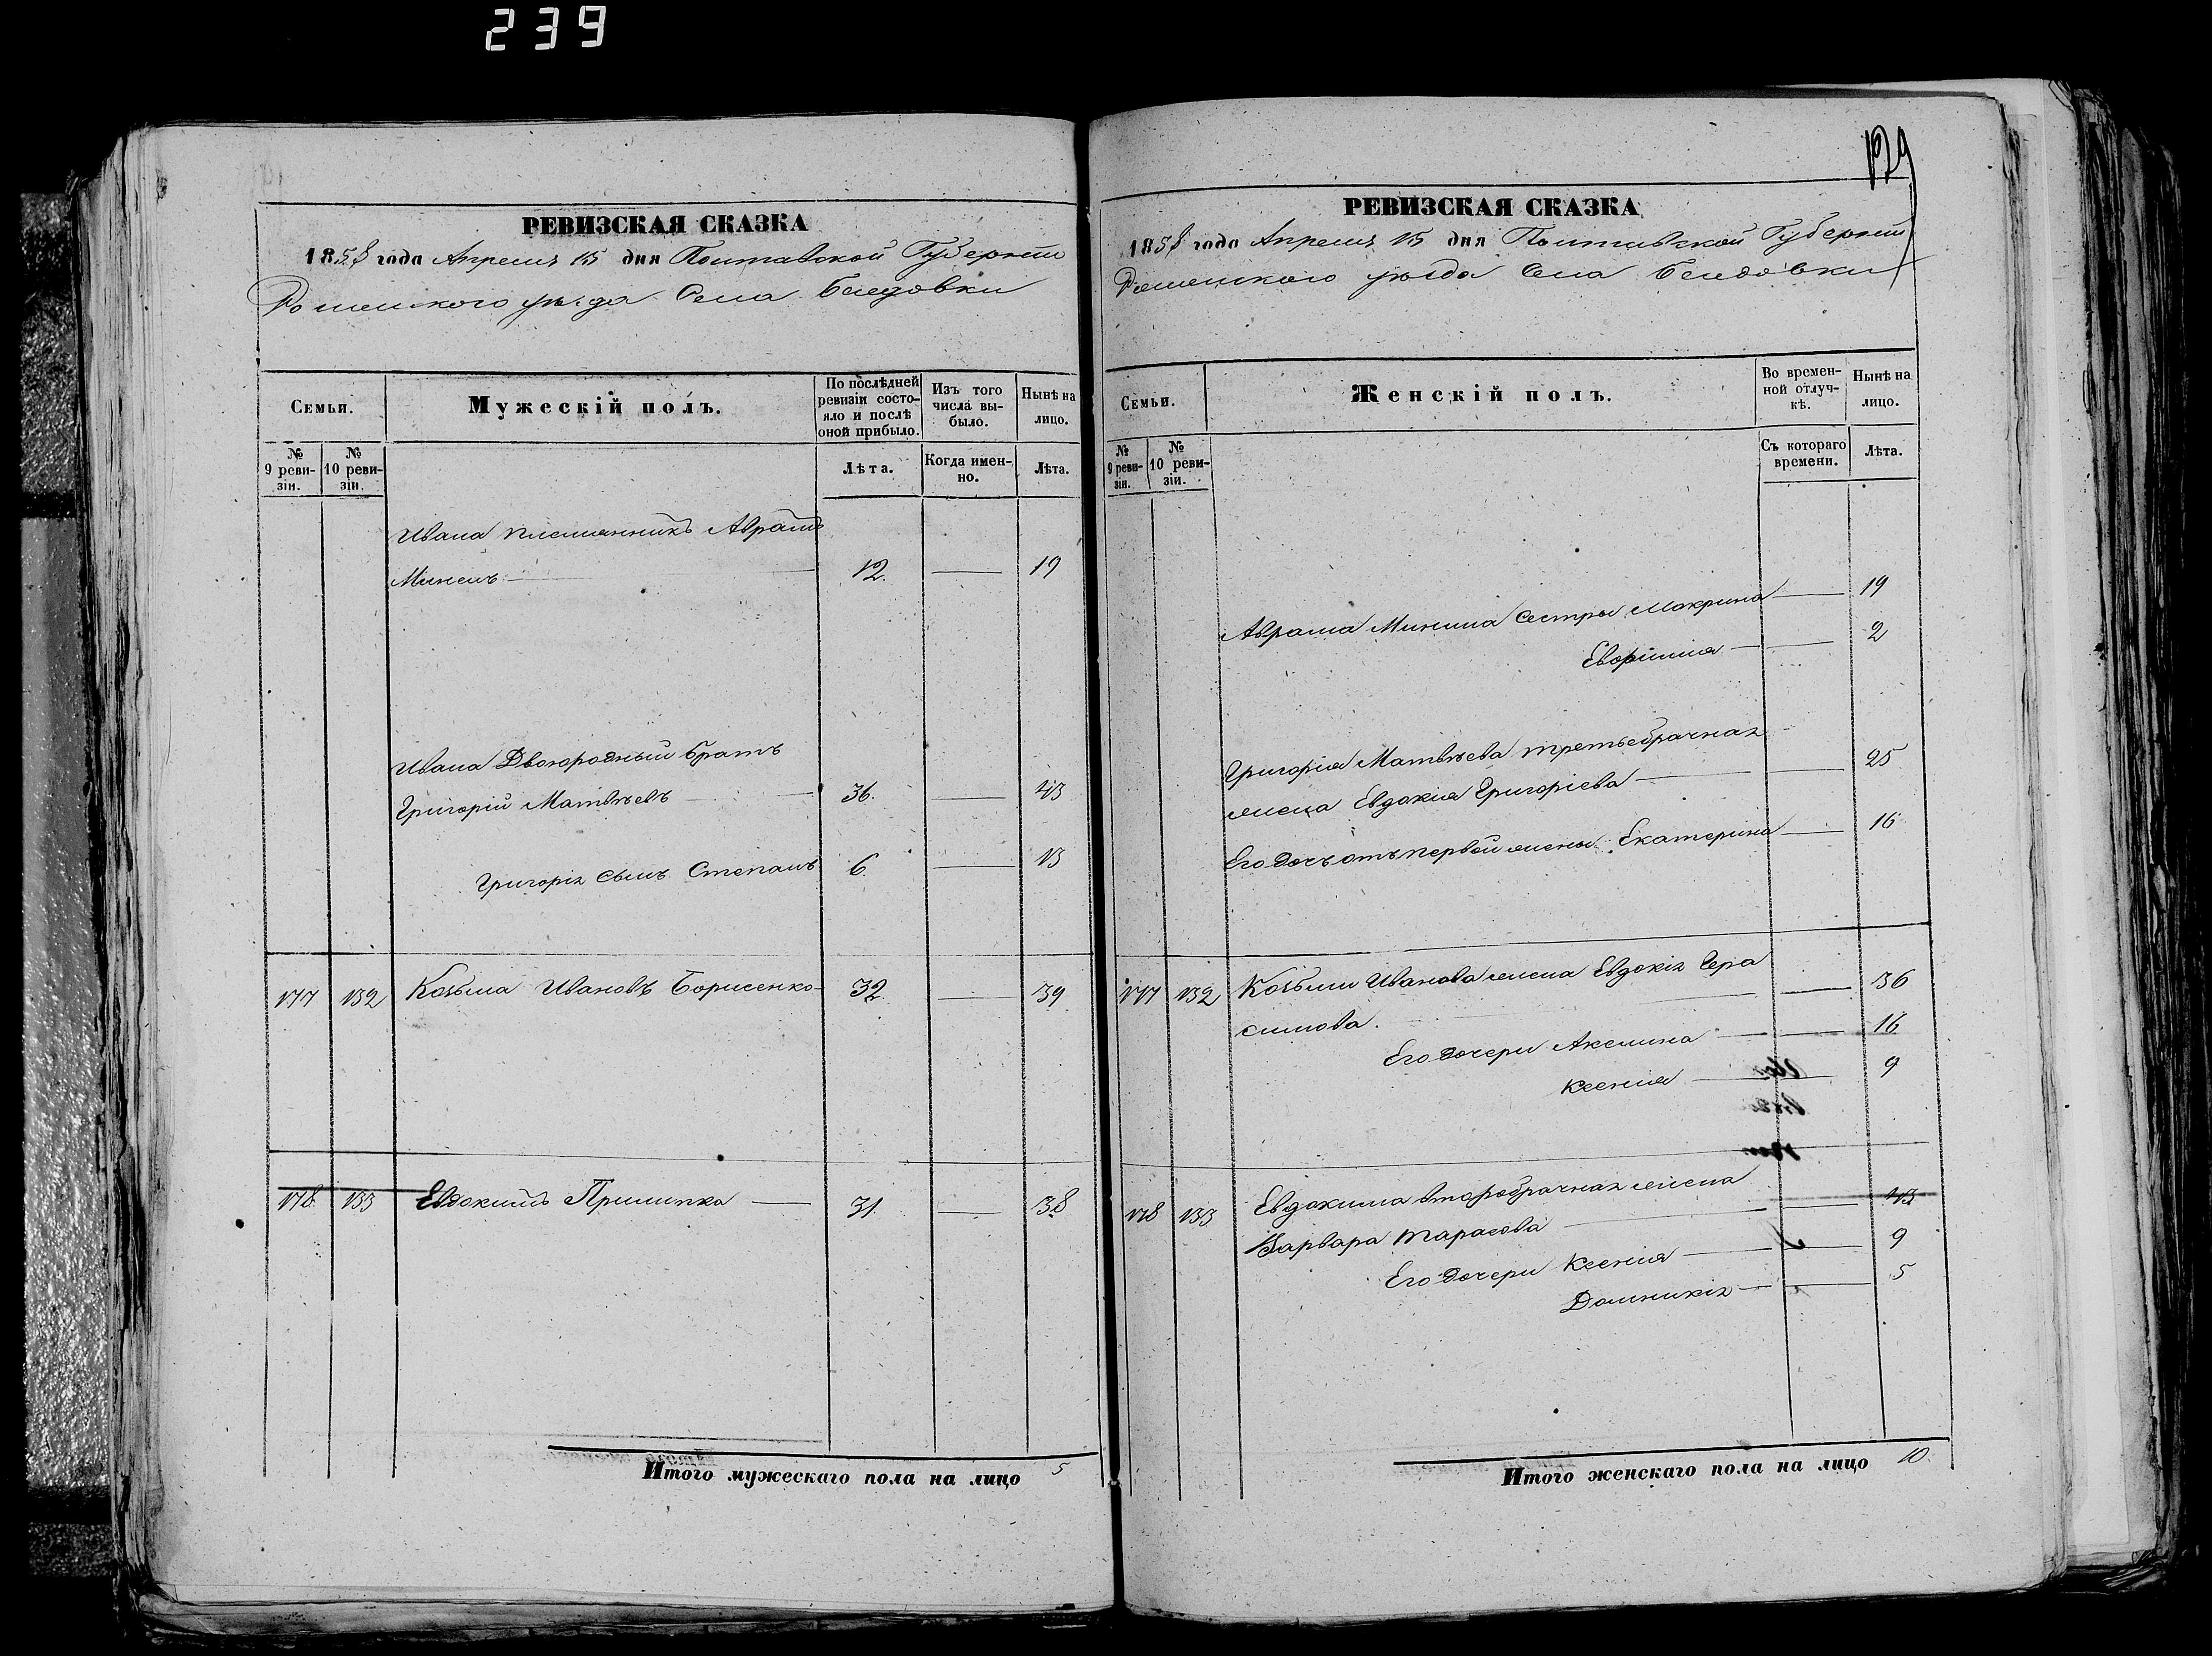 239
РЕВИЗСКАЯ СКАЗКА
1858 года Апреля 15 дня Полтавской Губернии
Роменского уѣзда Села Беедовки
Семьи.
Мужескій полъ.
По послѣдней ревизіи состояло и послѣ оной прибыло.
Изъ того числа выбыло.
Нынѣ на лицо.
№ 9 ревизіи.
№ 10 ревизіи.
Лѣта.
Когда именно.
Лѣта.
Ивана племянникъ Аврамъ
Мининъ 12. 19
Ивана Двоюродный братъ
Григорій Матвѣевъ 36. 43
Григорія сынъ Степанъ 6. 13
177 132 Козьма Ивановъ Борисенко 32. 39
178 133 Евдокимъ Прилипка 31. 38
Итого мужескаго пола на лицо 5
129
РЕВИЗСКАЯ СКАЗКА
1858 года Апреля 15 дня Полтавской Губерніи
Роменского уѣзда Села Беедовки
Семьи.
Женскій полъ.
Во временной отлучкѣ.
Нынѣ на лицо.
№ 9 ревизіи.
№ 10 ревизіи.
Съ котораго времени.
Лѣта.
Аврама Минина сестры Макрина 19
2
Григорія Матвѣева третьебрачная
жена Евдокія Григоріева 25
Его дочь отъ первой жены Екатерина 16
177 132 Козьмы Иванова жена Евдокія Гера
симова. 36
Его дочери Акелина 16
Ксенія 9
178 133 Евдокима второбрачная жена
Варвара Тарасова 43
Его дочери Ксенія 9
Домникія 5
Итого женскаго пола на лицо 10